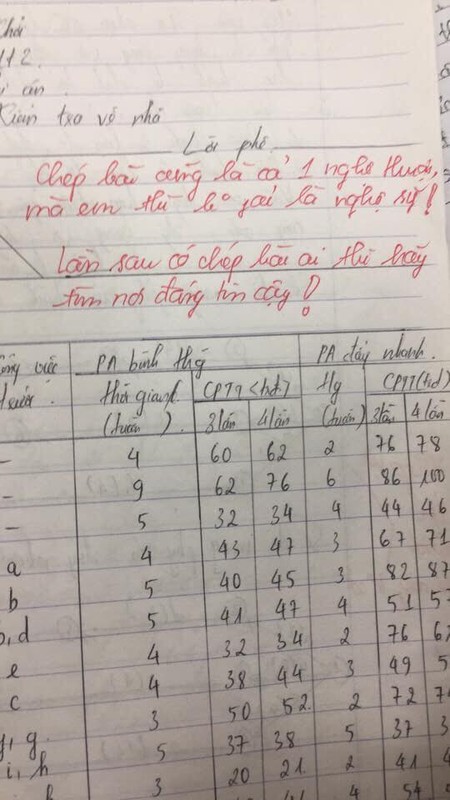 112
về nhà
Lời phê
Chép bài cũng là cả 1 nghệ thuật,
mà em thì k° phải là nghệ sỹ!
Lần sau có chép bài ai thì hãy
tìm nơi đáng tin cậy!
PA bình thg PA đẩy nhanh.
trước. thời gian CPTT (trđ) tg CPTT (trđ)
(tuần) 3 lần 4 lần (tuần) 3 lần 4 lần
- 4 60 62 2 76 78
- 9 62 76 6 86 100
- 5 32 34 4 44 46
a 4 43 47 3 67 71
b 5 40 45 3 82 87
b, d 5 41 47 4 51
e 4 32 34 2 76
c 4 38 44 3 49
3 50 52 2 72
g 5 37 38 5 37
i, h 3 20 21 2 41
4 54